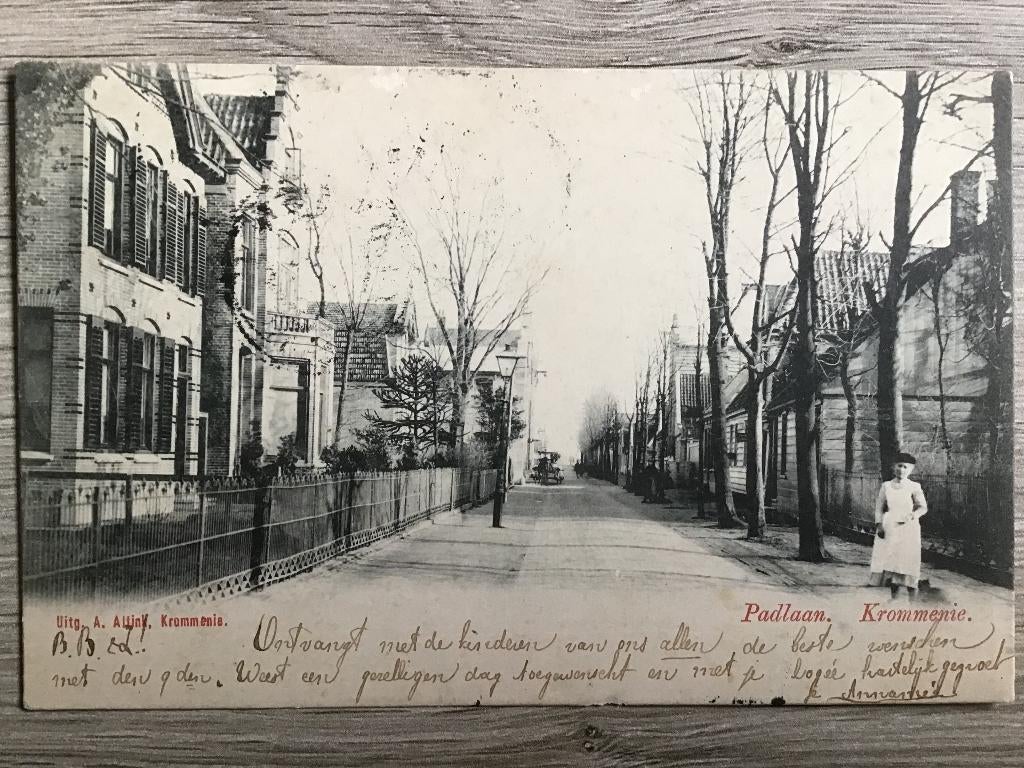 Uitg. A. Altink, Krommenie.
Padlaan. Krommenie.
B.B. en Z.! Ontvangt met de kinderen van ons allen de beste wenschen
met den 9den. Weest een gezelligen dag toegewenscht en met je logée hartelijk gegroet
Annamie